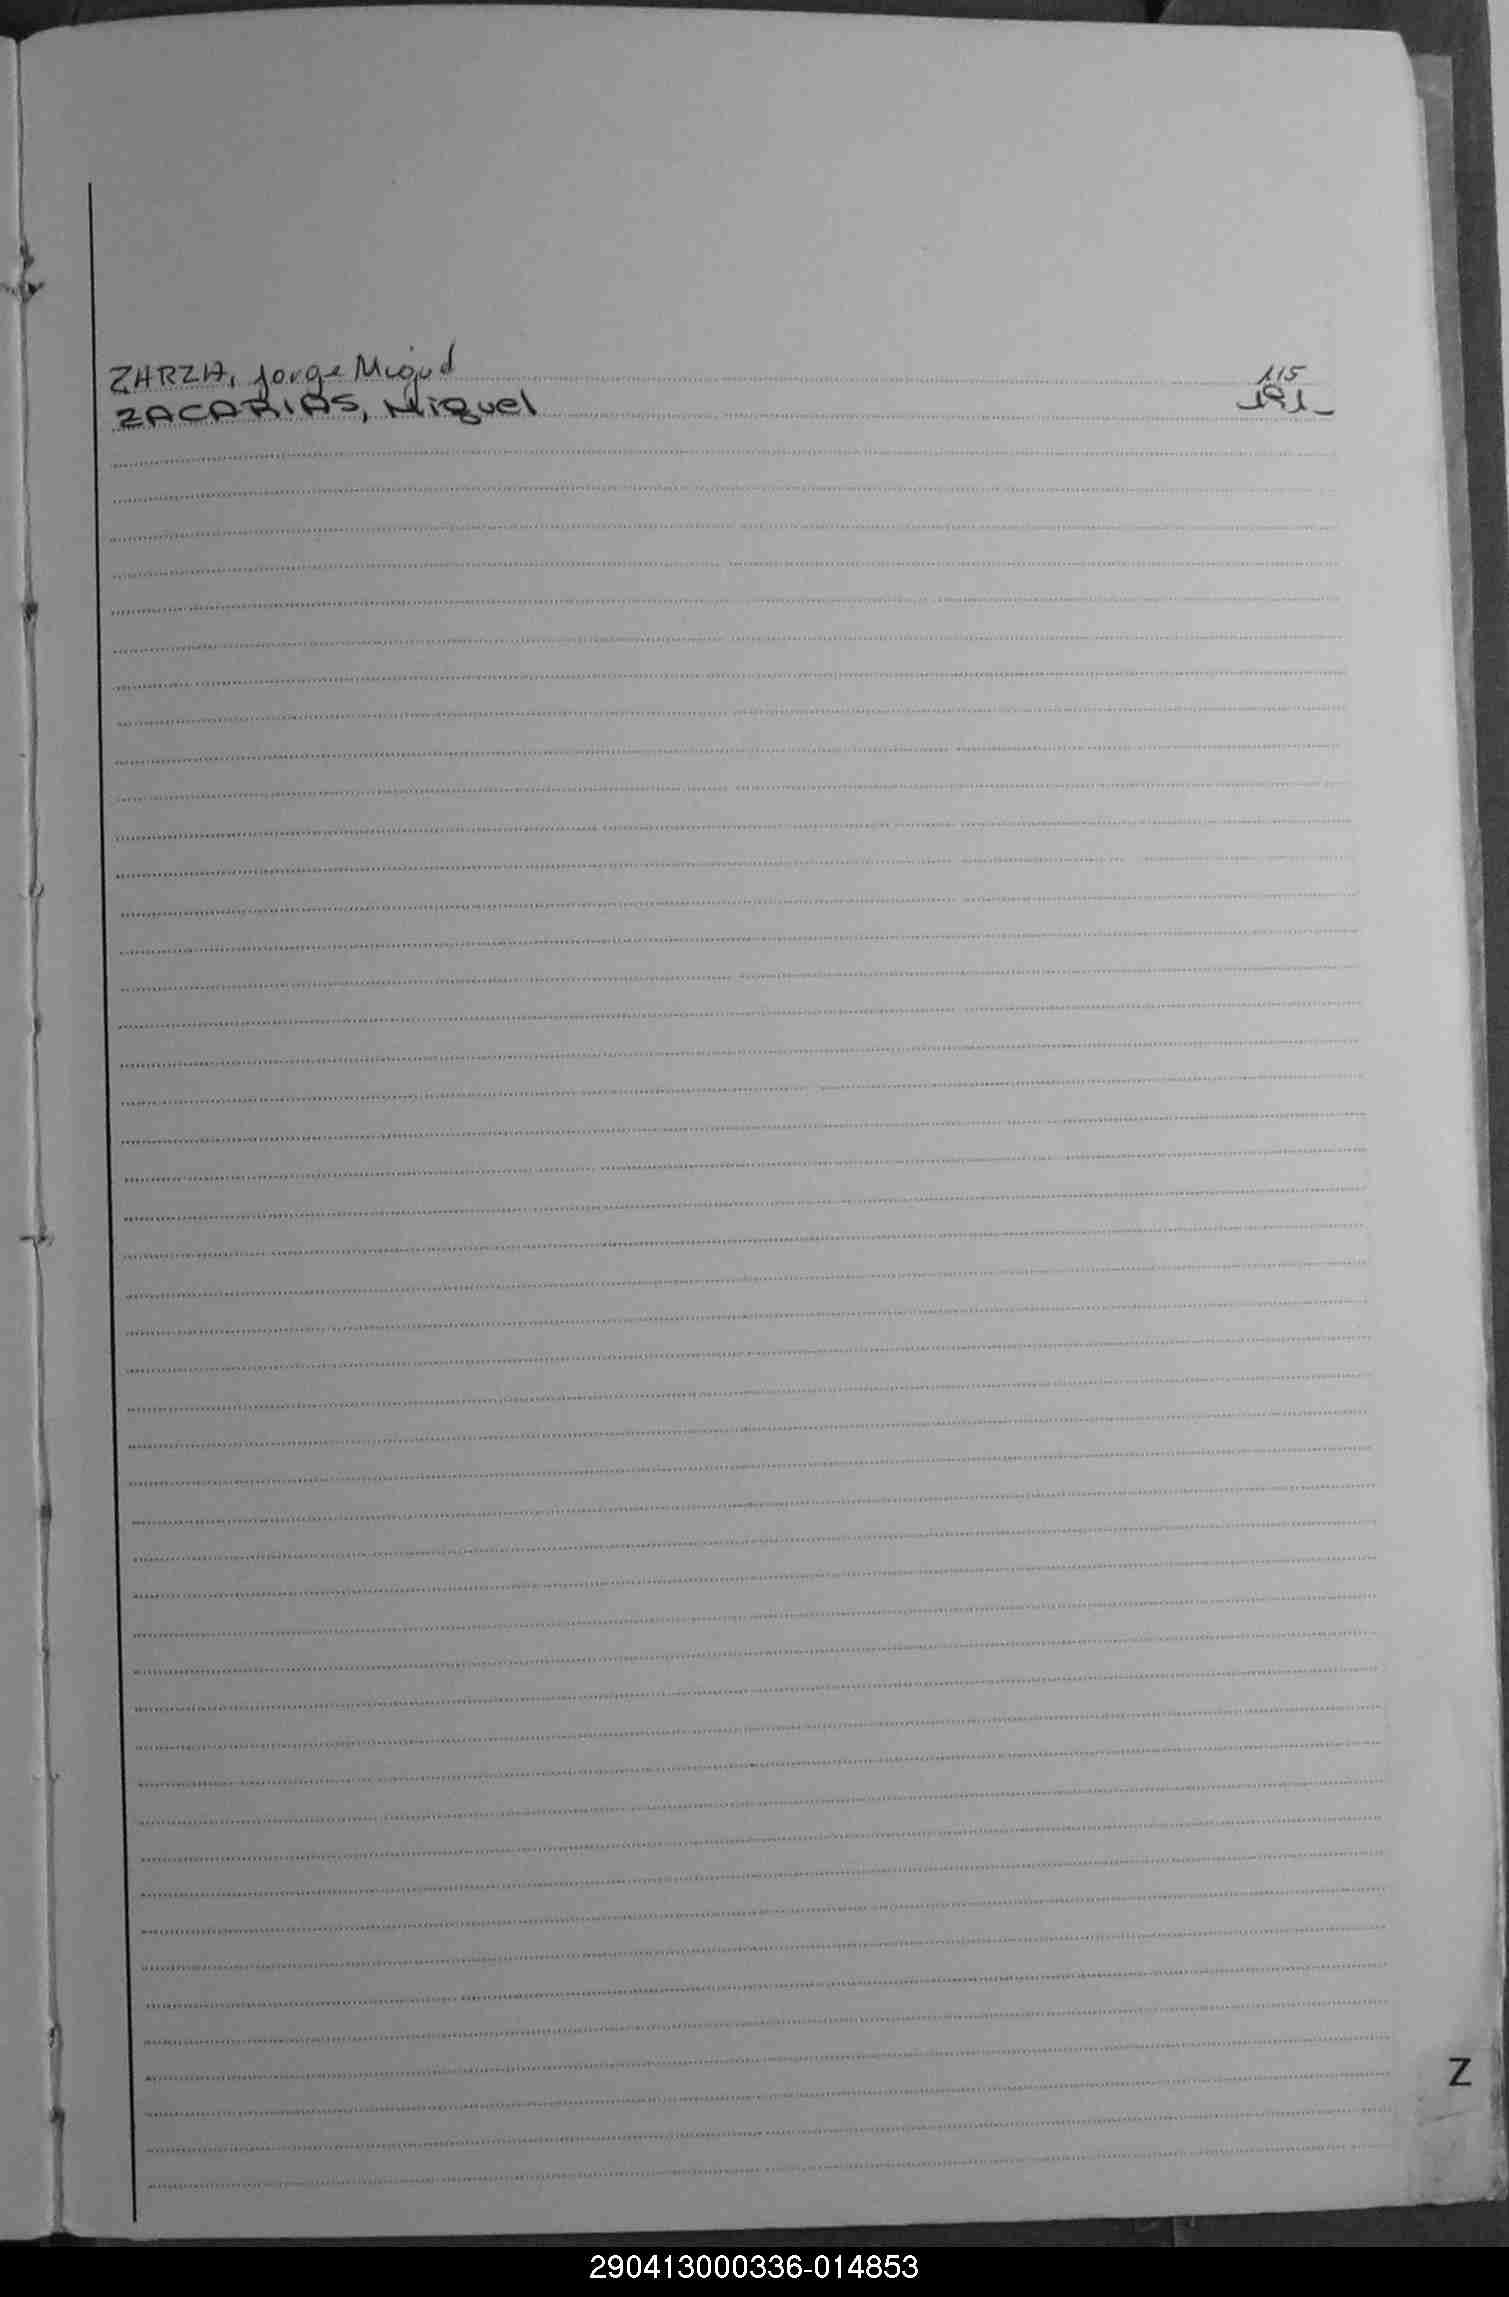 ZARZA, Jorge Miguel 115
ZACARIAS, Miguel 191
Z
290413000336-014853